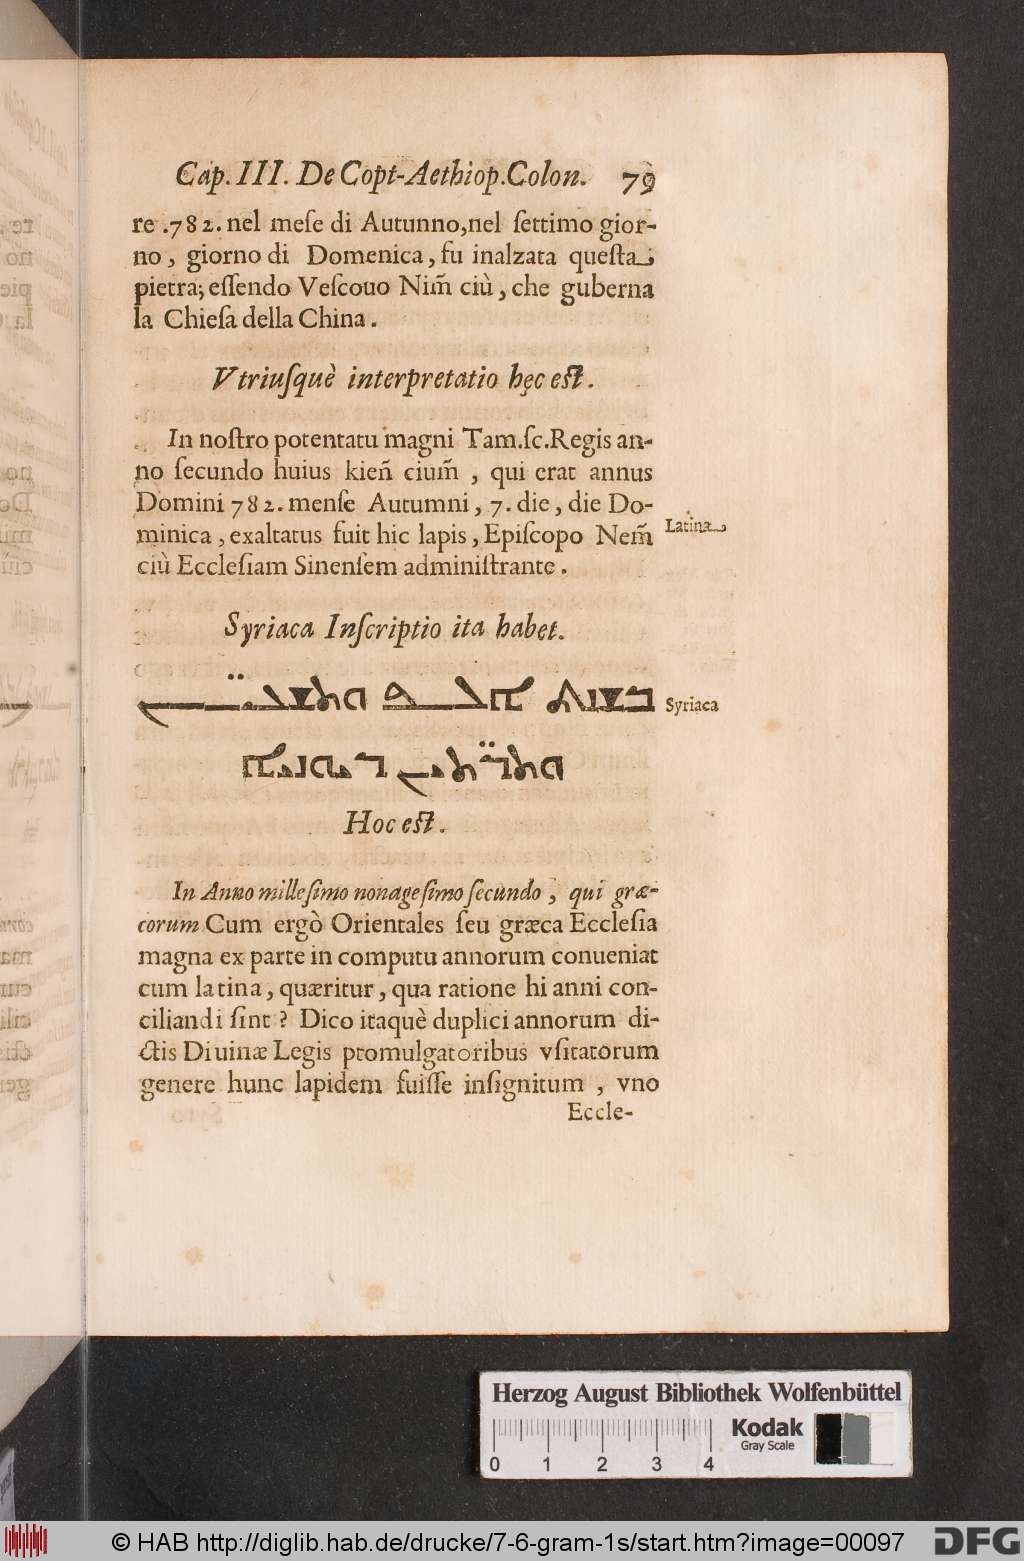 Cap. III. De Copt-Aethiop. Colon. 79
re .782. nel meſe di Autunno, nel ſettimo gior-
no, giorno di Domenica, fu inalzata queſta
pietra; eſſendo Veſcouo Nim̃ ciù, che guberna
la Chieſa della China.
Vtriuſquè interpretatio hęc eſt.
In noſtro potentatu magni Tam.ſc.Regis an-
no ſecundo huius kien̄ cium̃, qui erat annus
Domini 782. menſe Autumni, 7. die, die Do-
minica, exaltatus fuit hic lapis, Epiſcopo Nem̃
ciù Eccleſiam Sinenſem adminiſtrante.
Latina
Syriaca Inſcriptio ita habet.
ܒܫܢܬ ܐܠܦ ܘܬܫܥܝܢ
Syriaca
ܘܬܪܬܝܢ ܕܝܘܢܝܐ
Hoc eſt.
In Anno milleſimo nonageſimo ſecundo, qui græ-
corum Cum ergò Orientales ſeu græca Eccleſia
magna ex parte in computu annorum conueniat
cum latina, quæritur, qua ratione hi anni con-
ciliandi ſint? Dico itaquè duplici annorum di-
ctis Diuinæ Legis promulgatoribus vſitatorum
genere hunc lapidem fuiſſe inſignitum, vno
Eccle-
Herzog August Bibliothek Wolfenbüttel
Kodak
Gray Scale
0 1 2 3 4
© HAB http://diglib.hab.de/drucke/7-6-gram-1s/start.htm?image=00097
DFG